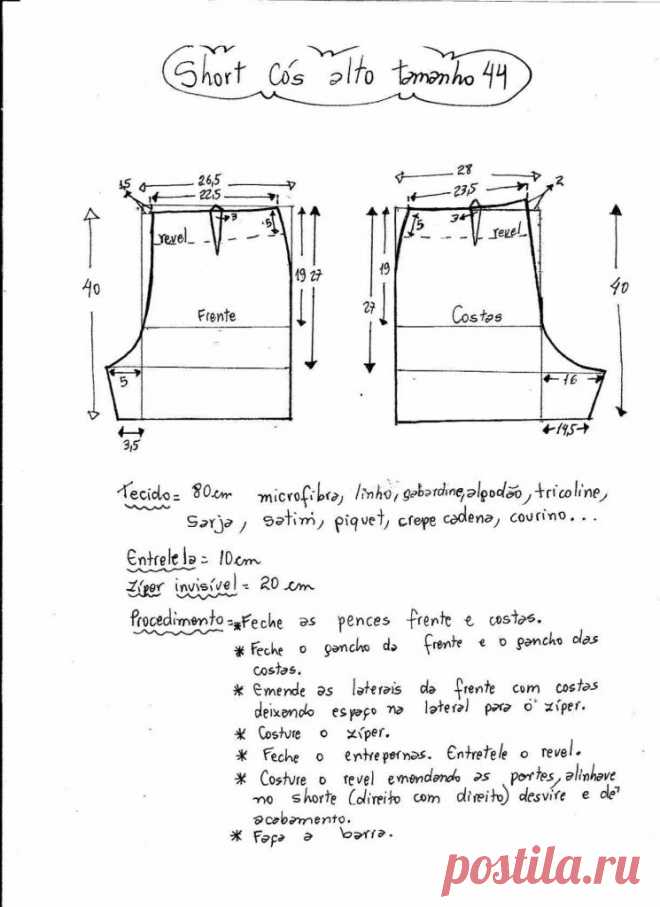 Short Cós alto tamanho 44
26,5
1,5
22,5
3
5
revel
19
27
40
Frente
5
3,5
28
23,5
2
5
3
revel
19
27
40
Costas
16
14,5
Tecido = 80cm microfibra, linho, gabardine, algodão, tricoline,
sarja, setim, piquet, crepe cadena, courino...
Entretela = 10cm
Zíper invisível = 20 cm
Procedimento = *Feche as pences frente e costas.
* Feche o gancho da frente e o gancho das
costas.
* Emende as laterais da frente com costas
deixando espaço na lateral para o zíper.
* Costure o zíper.
* Feche o entrepernas. Entretele o revel.
* Costure o revel emendando as partes, alinhave
no shorte (direito com direito) desvire e dê
acabamento.
* Faça a barra.
postila.ru